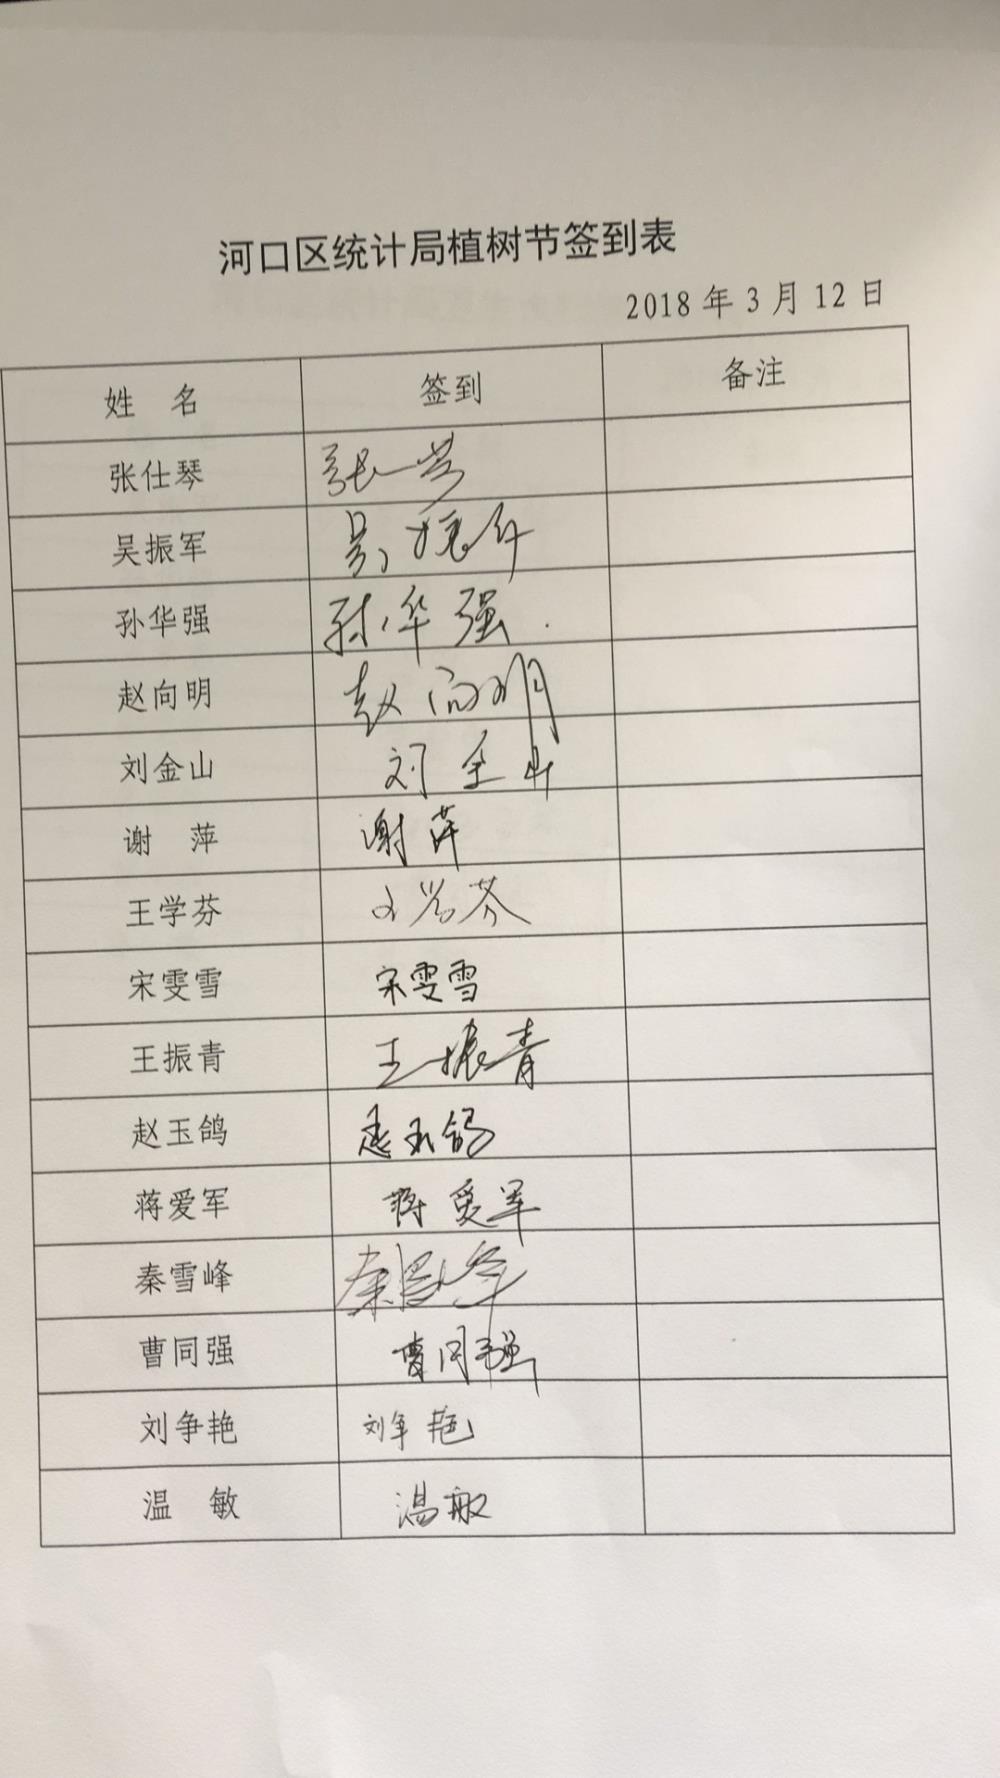 河口区统计局植树节签到表
2018 年 3 月 12 日
姓 名 签到 备注
张仕琴 张
吴振军 吴振军
孙华强 孙华强
赵向明 赵向明
刘金山 刘金山
谢 萍 谢萍
王学芬 王学芬
宋雯雪 宋雯雪
王振青 王振青
赵玉鸽 赵玉鸽
蒋爱军 蒋爱军
秦雪峰 秦雪峰
曹同强 曹同强
刘争艳 刘争艳
温 敏 温敏